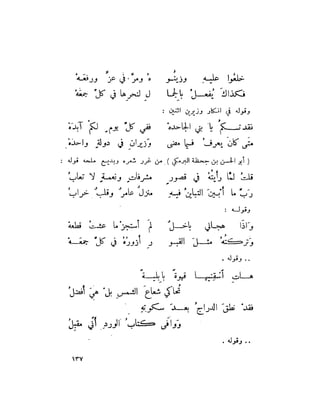 خلعُوا عليـــهِ وزينُــو هُ ومرَّ في عزٍّ ورفعَـهْ
فكذاكَ يُفعــــلُ بالجمَا لِ لنحرِها في كلِّ جمعَهْ
وقوله في انكار وزيرين اثنين :
نفدتـــــكُمُ يا بني الجاحدهْ ففي كلِّ يومٍ لكمْ آبدَهْ
متَى كانَ يعرفُ فيما مضى وَزيرانِ في دولةٍ واحدَهْ
( أبو الحسن بن جحظة البرمكي ) من غرر شعره وبديـع ملحه قوله :
قلتُ لمَّا رأيتُهُ في قصورٍ مشرفاتٍ ونعمــةٍ لا تعابُ
ربِّ ما أبْـيَنَ التباينَ فيــهِ منزلٌ عامرٌ وقلبٌ خرابُ
وقولـــه :
وَاذَا هجانِي باخـــلٌ لمْ أستجزْ ما عشتُ قطعهْ
وَتركتُهُ مثـــلَ القبــو رِ أزورُهُ في كلِّ جمعَـــهْ
.. وقوله .
هـــاتِ أسْقِنيهــا قهوةً بابِليـــةً
تُحاكي شعاعَ الشمسِ بلْ هيَ أفضلُ
فقدْ نطقَ الدراجُ بعــدَ سكوتهِ
ووَافَى كتابُ الوردِ أنِّي مقبلُ
.. وقوله .
١٣٧